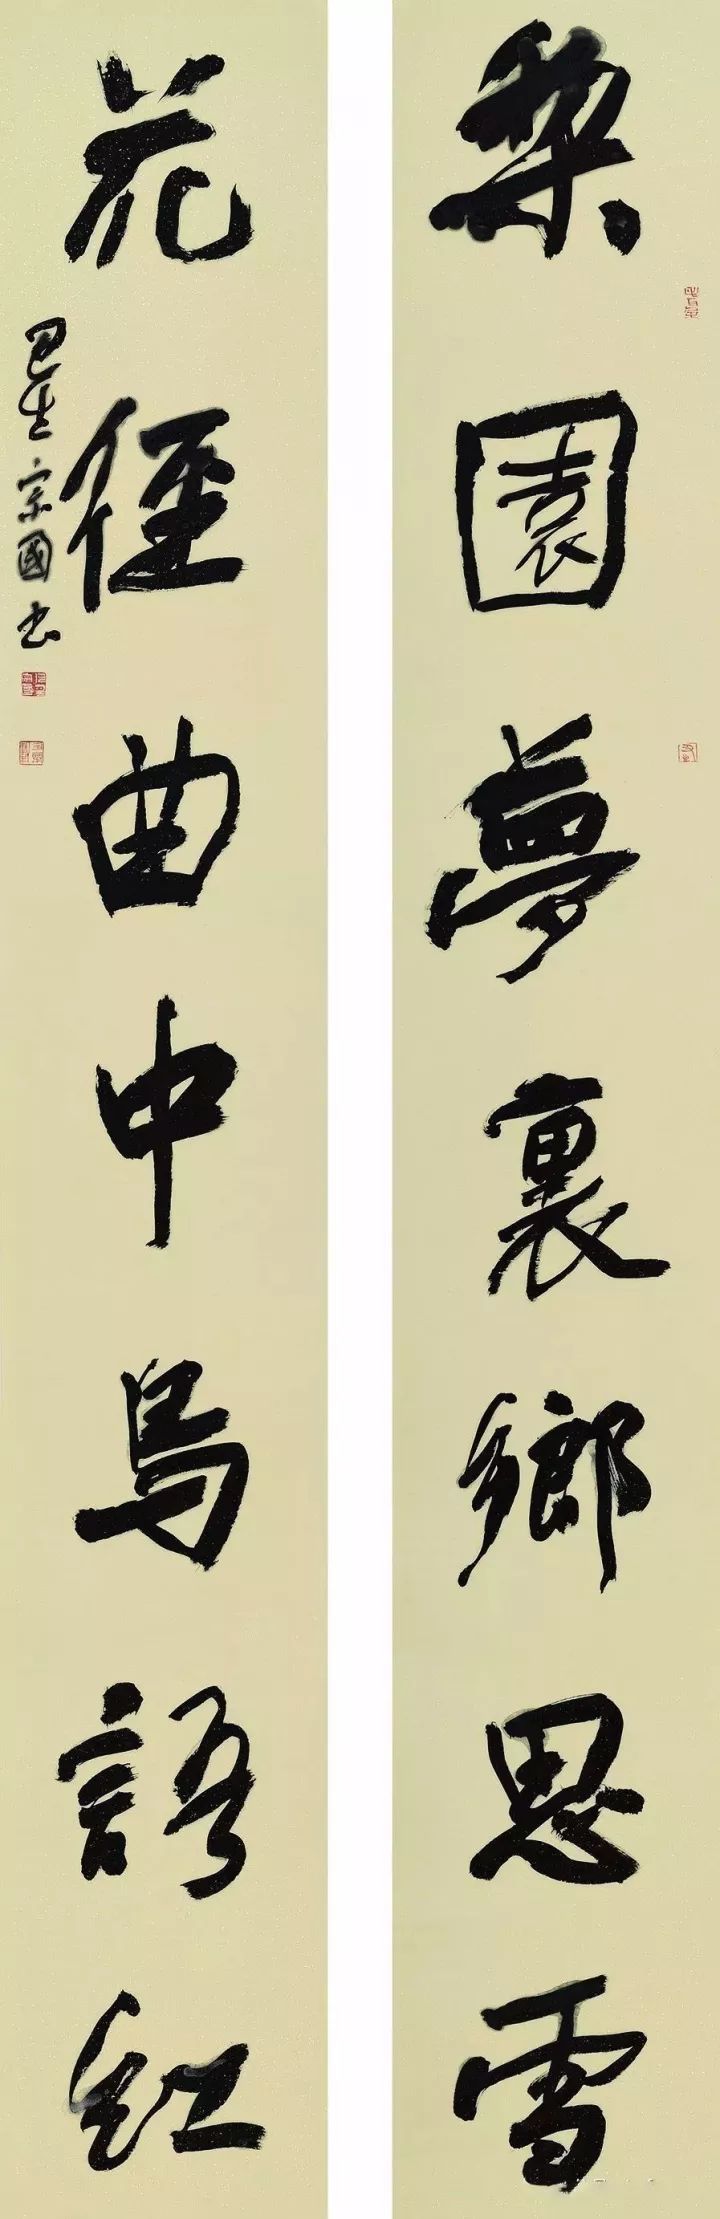 梨園夢裏鄉思雪
花徑曲中鳥語紅
宗國書